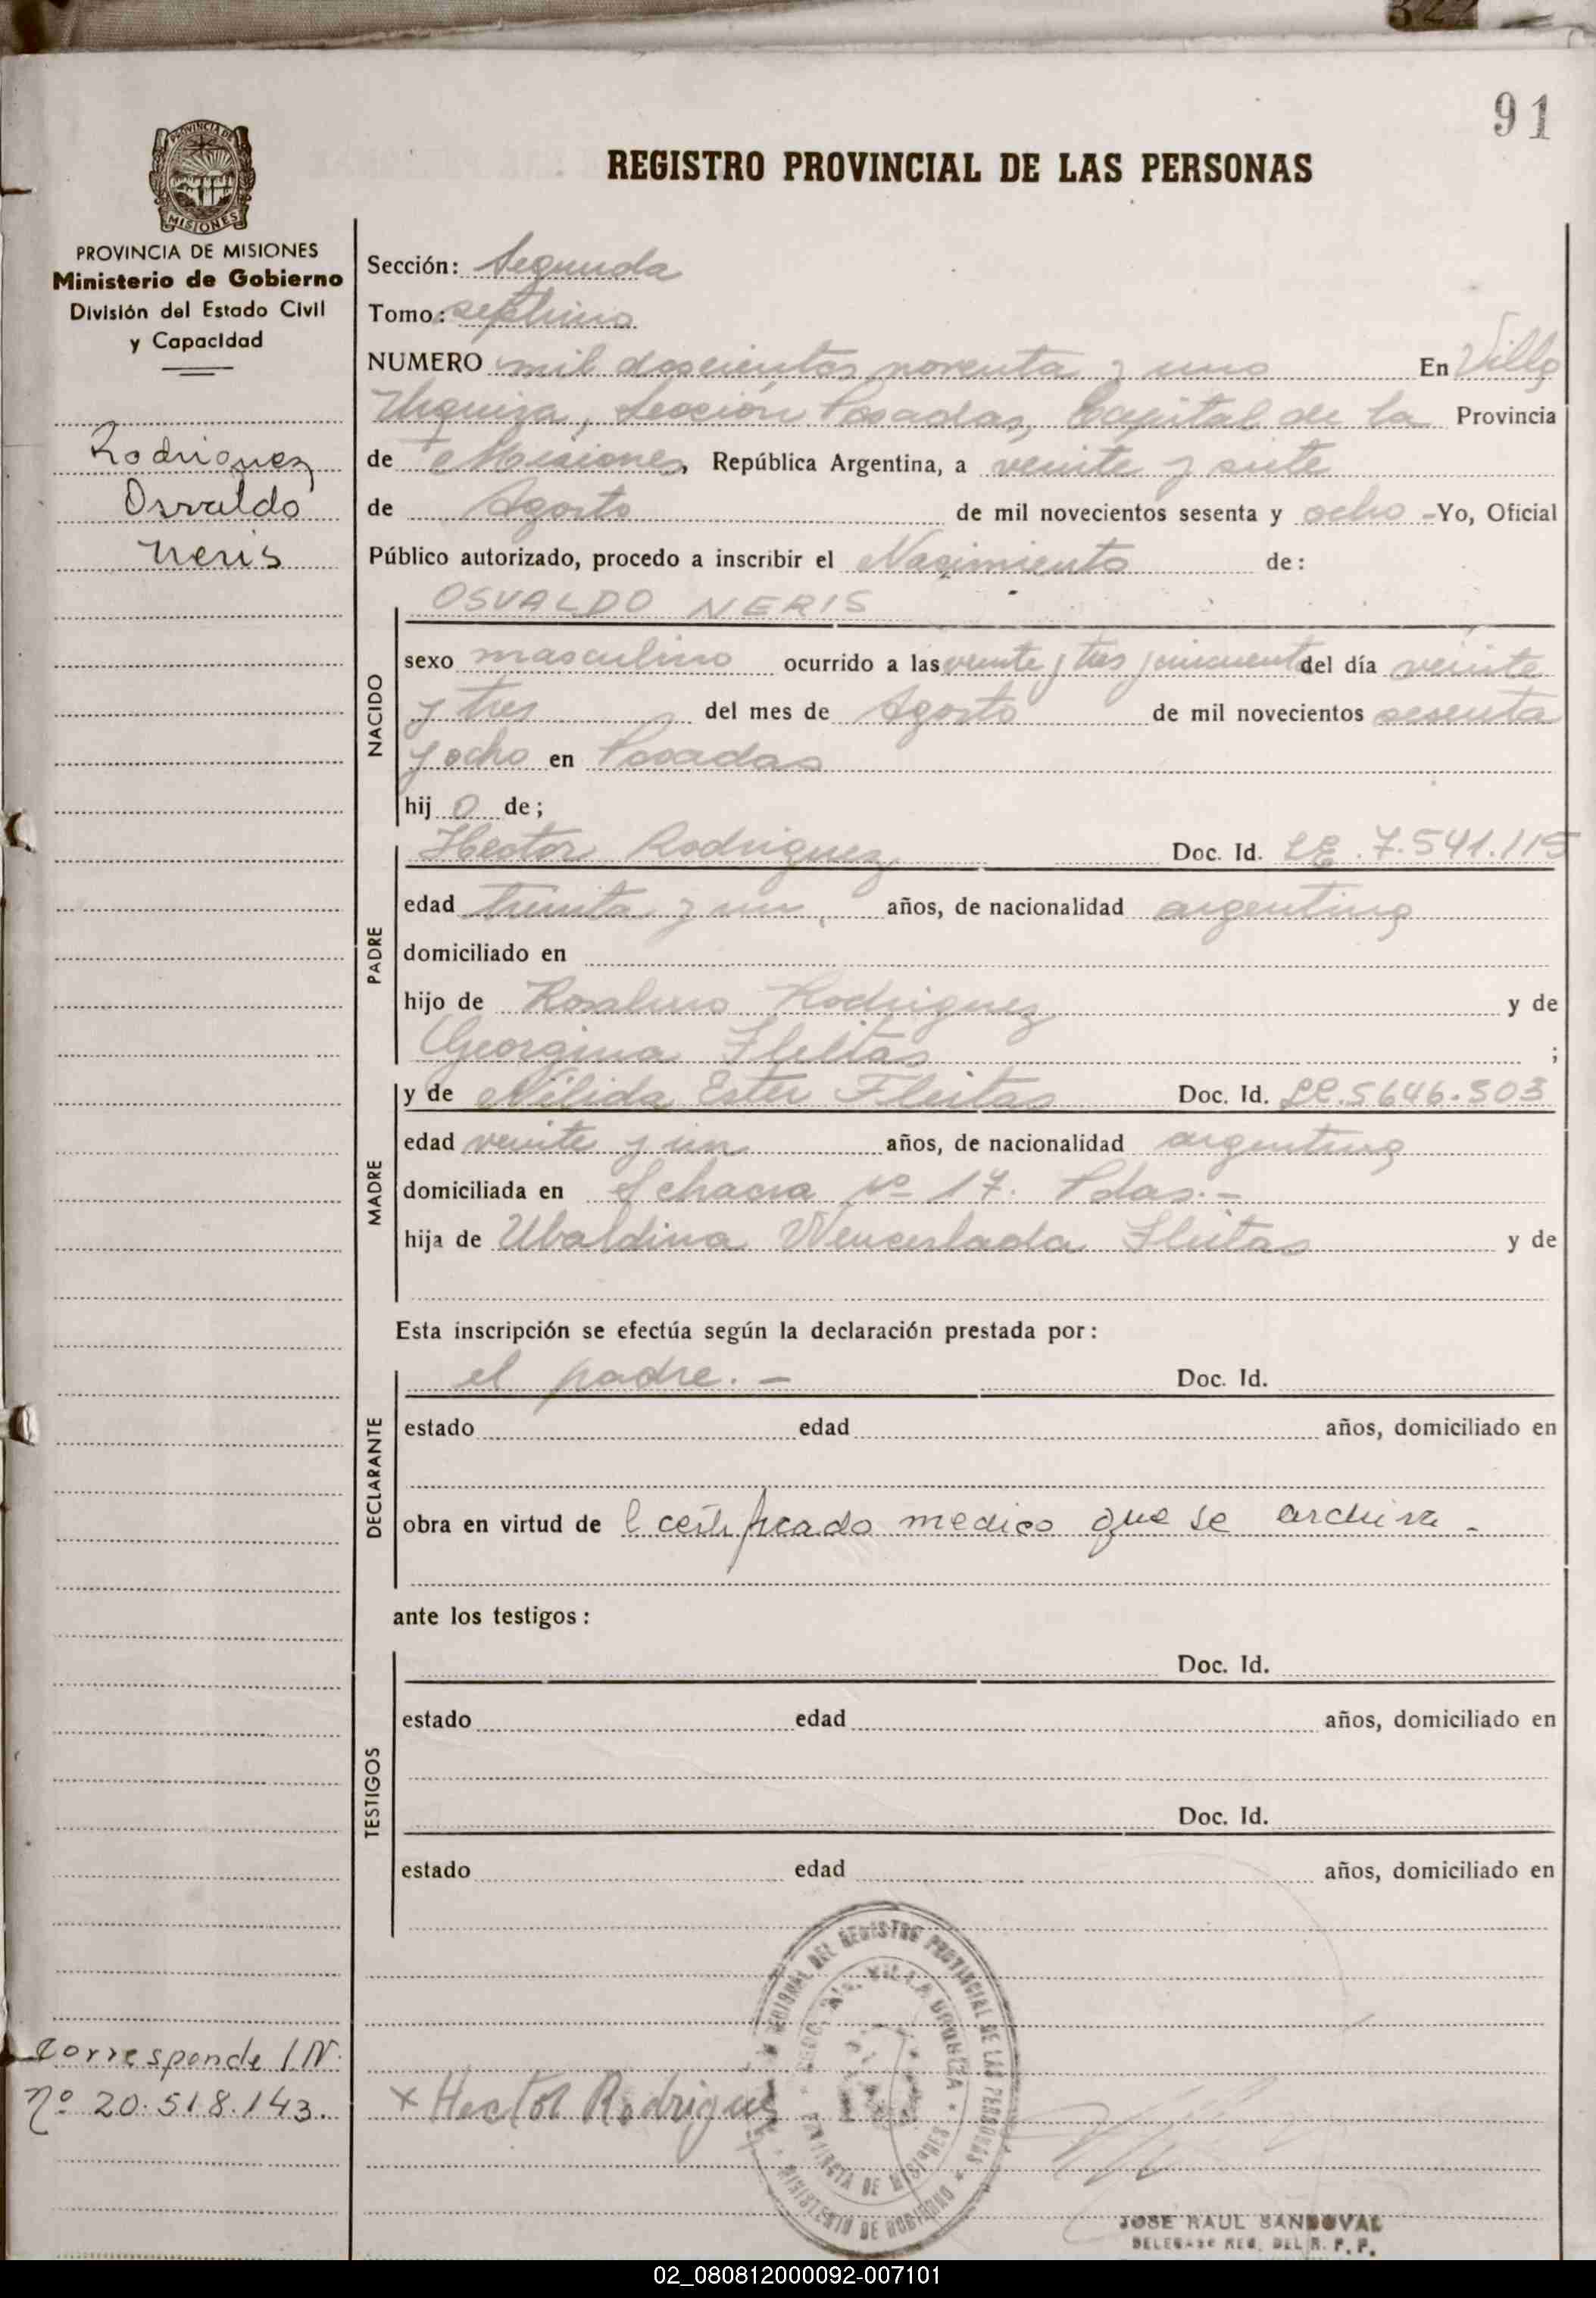 91
PROVINCIA DE
MISIONES
REGISTRO PROVINCIAL DE LAS PERSONAS
PROVINCIA DE MISIONES
Ministerio de Gobierno
División del Estado Civil
y Capacidad
Rodriguez
Osvaldo
Neris
Sección: Segunda
Tomo: septimo
NUMERO mil doscientos noventa y uno En Villa
Urquiza, Sección Posadas, Capital de la Provincia
de Misiones, República Argentina, a veinte y siete
de Agosto de mil novecientos sesenta y ocho -Yo, Oficial
Público autorizado, procedo a inscribir el Nacimiento de:
NACIDO
OSVALDO NERIS
sexo masculino ocurrido a las veinte y tres y cincuenta del día veinte
y tres del mes de Agosto de mil novecientos sesenta
y ocho en Posadas
hij o de;
PADRE
Hector Rodriguez Doc. Id. LE. 7.541.115
edad treinta y un años, de nacionalidad argentina
domiciliado en
hijo de Rosalino Rodriguez y de
Georgina Fleitas ;
MADRE
y de Nélida Ester Fleitas Doc. Id. LC. 5646.503
edad veinte y un años, de nacionalidad argentina
domiciliada en Chacra Nº 17. Pdas.-
hija de Ubaldina Wenceslada Fleitas y de
Esta inscripción se efectúa según la declaración prestada por:
DECLARANTE
el padre. - Doc. Id.
estado edad años, domiciliado en
obra en virtud de l certificado medico que se archiva -
ante los testigos:
TESTIGOS
Doc. Id.
estado edad años, domiciliado en
Doc. Id.
estado edad años, domiciliado en
REGIONAL DEL REGISTRO PROVINCIAL DE LAS PERSONAS
MINISTERIO DE GOBIERNO
VILLA URQUIZA
PROVINCIA DE MISIONES
Corresponde I N.
Nº 20.518.143.
x Hector Rodrigues
JOSE RAUL SANDOVAL
DELEGADO REG. DEL R. P. P.
02_080812000092-007101